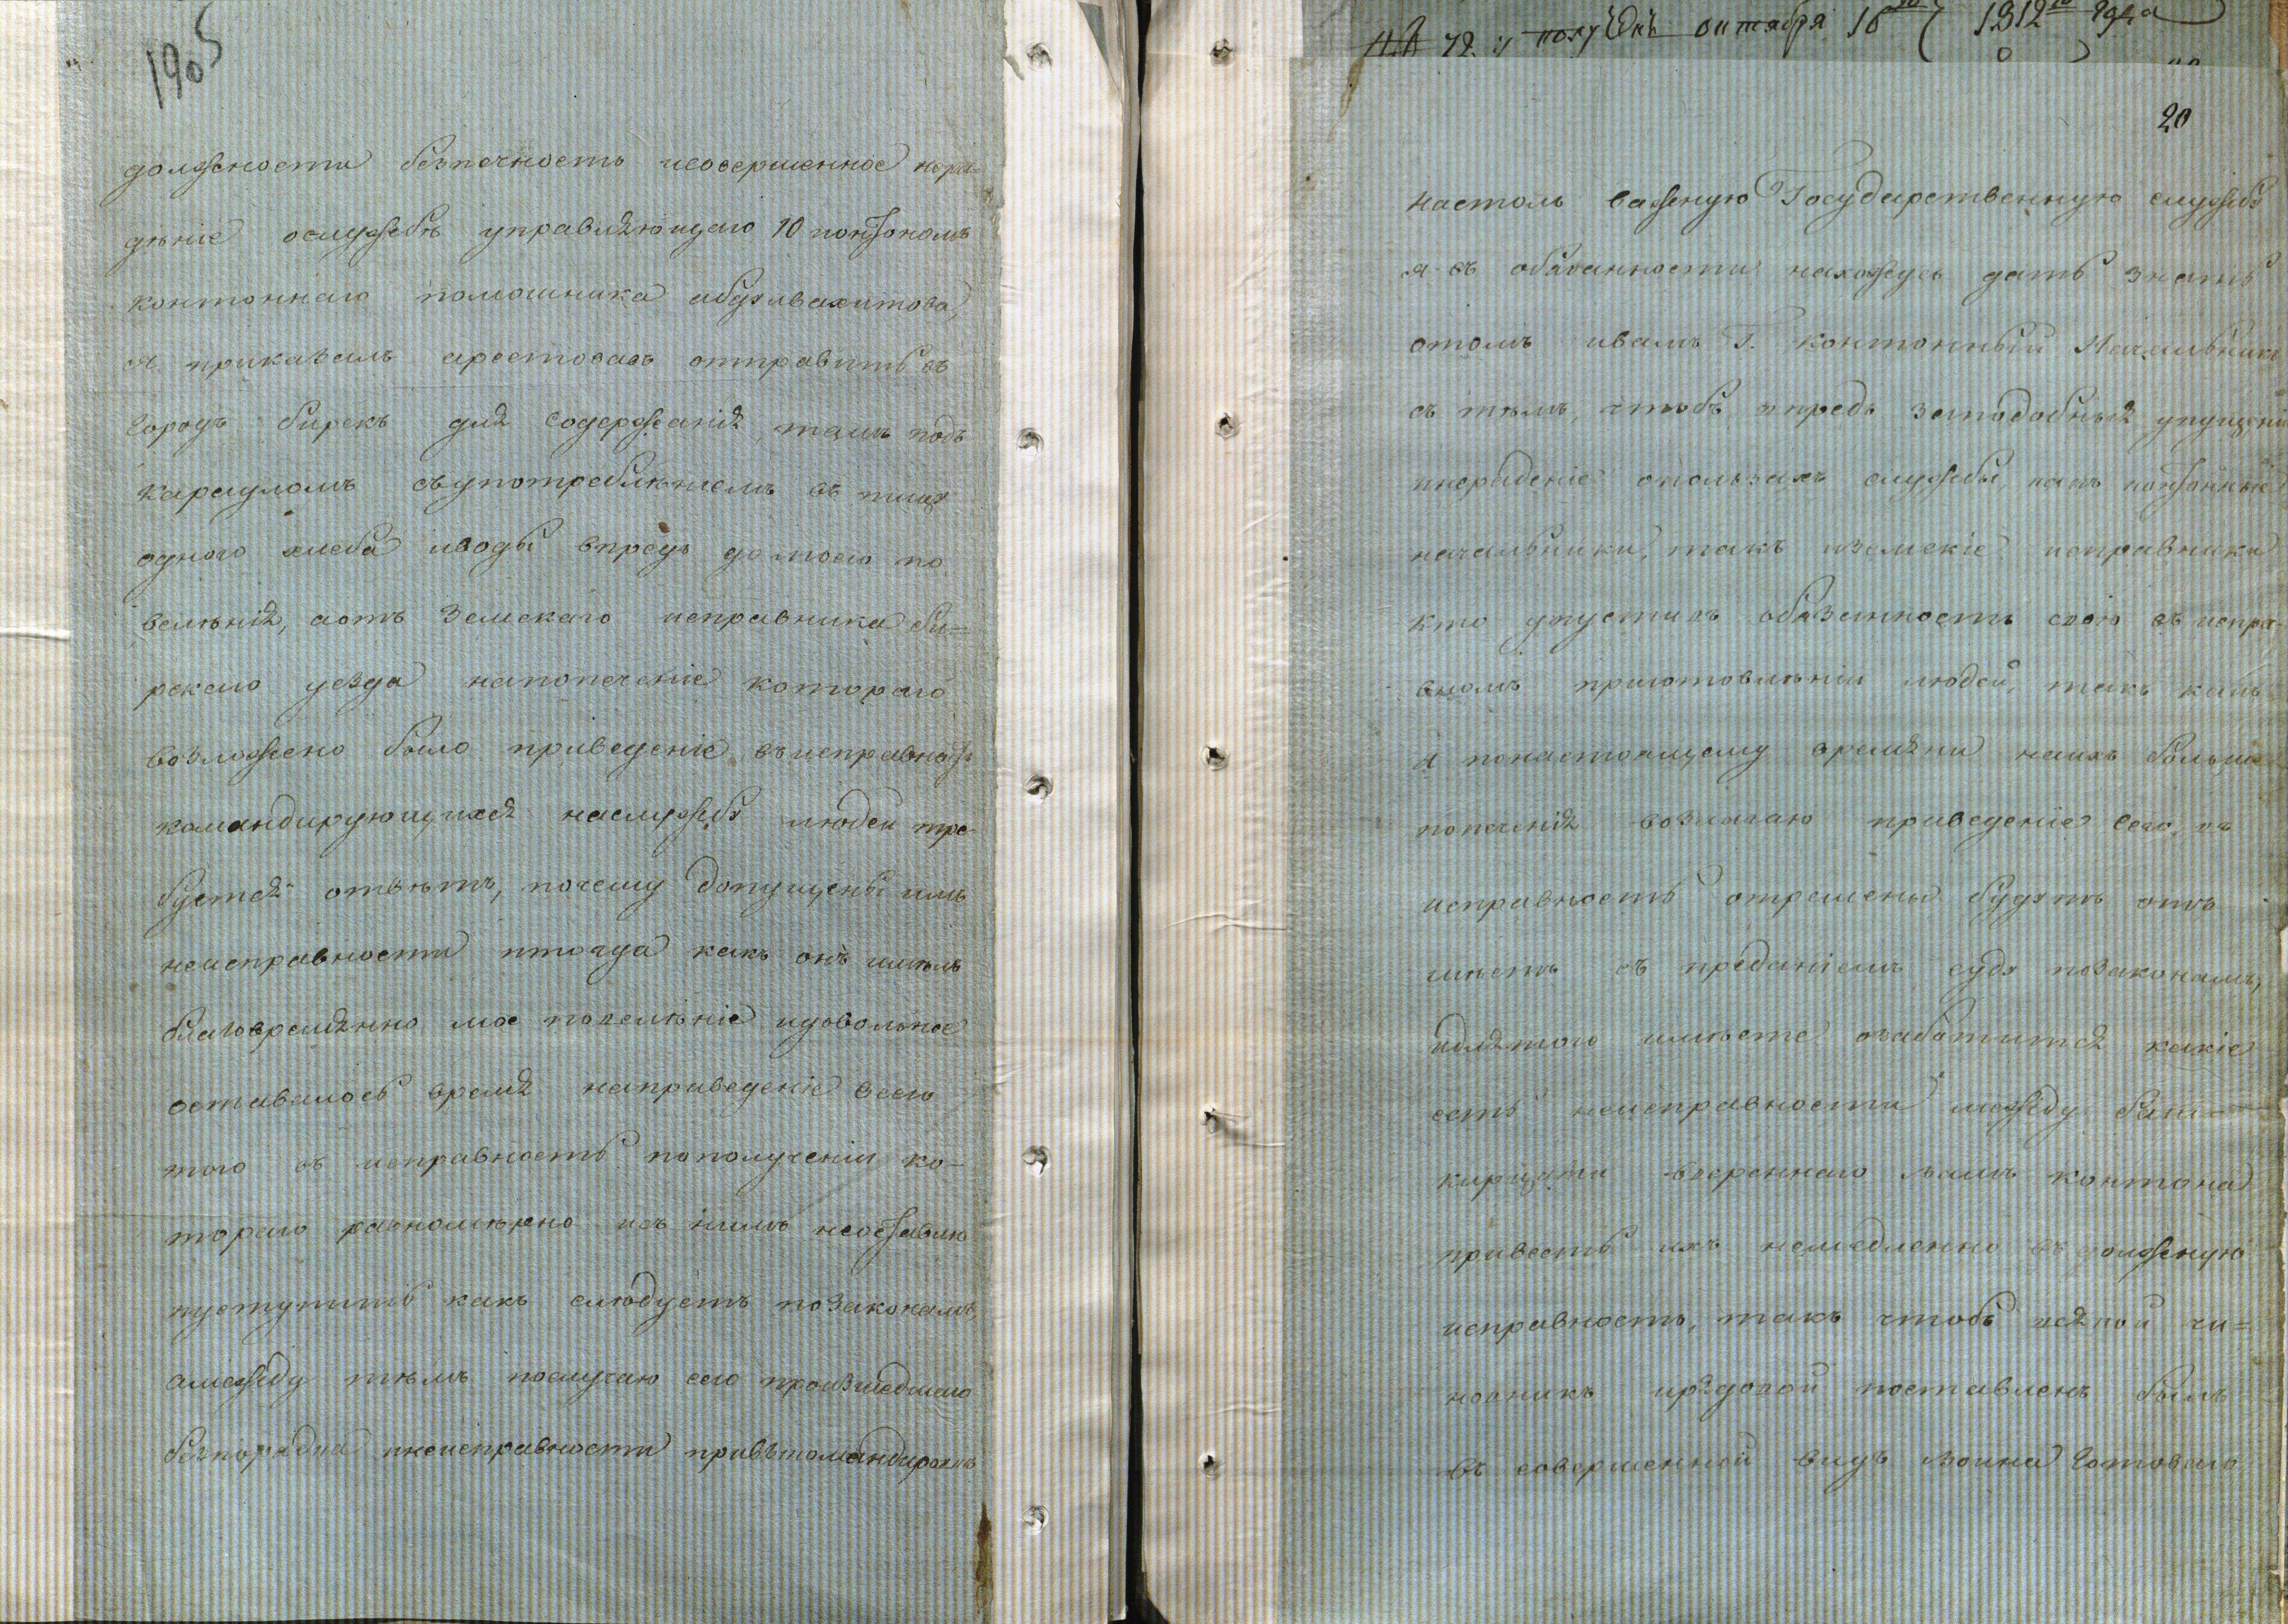 1905
должности безпечность исовершенное нера-
дѣніе ослужбѣ управляющаго 10 контономъ
контоннаго помошника абдулвахитова,
я приказалъ арестовавъ отправить въ
городъ бирскъ для содержанія тамъ подъ
карауломъ съупотребленіемъ въ пищу
одного хлеба иводы впредь до моего по
веленія, аотъ Земскаго исправника би=
рскаго уезда напопеченіе котораго
возложено было приведеніе въисправность
командирующихся наслужбу людей тре-
буется отвѣтъ, почему допущены имъ
неисправности итогда какъ онъ имѣлъ
благовремянно мое повелѣніе идовольное
оставалось время наприведеніе всего
того въ исправность пополученіи ко-
тораго равномѣрно исъ нимъ неоставлю
пуступить какъ слюдуетъ позаконамъ,
амежду тѣмъ послучаю сего произшедшаго
безпорядка инеисправности привъкомандировкѣ
получено октября 16 1812 года
20
настоль важную Государственную службу
я въ обязанности нахожусь дать знать
отомъ ивамъ Г. контонный Начальникъ
съ тѣмъ, чтобъ впредь заподобныя упущении
инераденіе опользахъ службы, какъ контонные
начальники, такъ иземскіе исправники
кто упуститъ обязанность свою въ испра-
вномъ приготовлѣніи людей, такъ какъ
я понастоящему времяни наихъ больше
попеченія возлагаю приведеніе всего въ
исправность отрешены будутъ отъ
мѣстъ съ преданіемъ суду позаконамъ,
идлятого имѣете озаботится какіе
есть неисправности между баш-
кирцами ввереннаго вамъ контона
привесть ихъ немедленно въ должную
исправность, такъ чтобъ всякой чи=
новникъ ирядовой поставленъ былъ
въ совершенной видъ воина готоваго